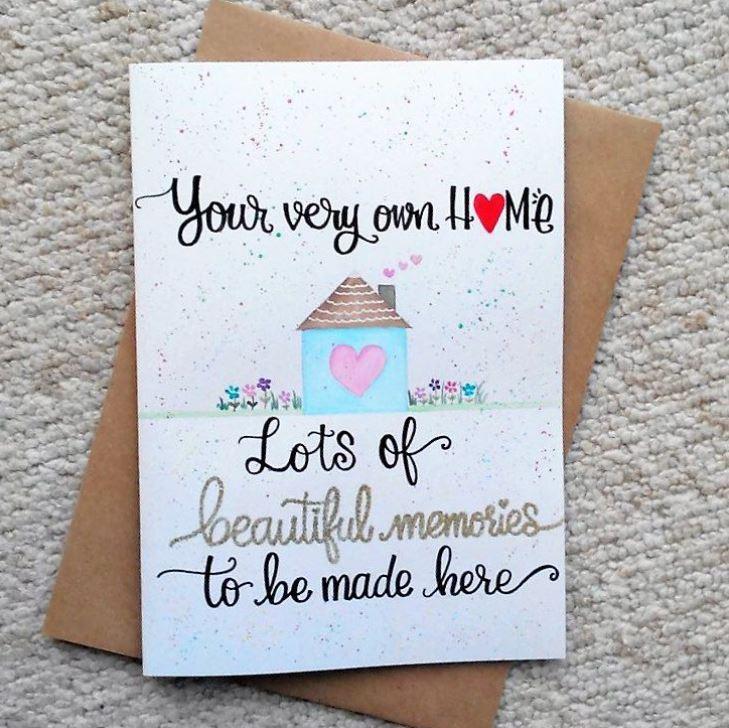 Your very own H❤Me
Lots of
beautiful memories
to be made here